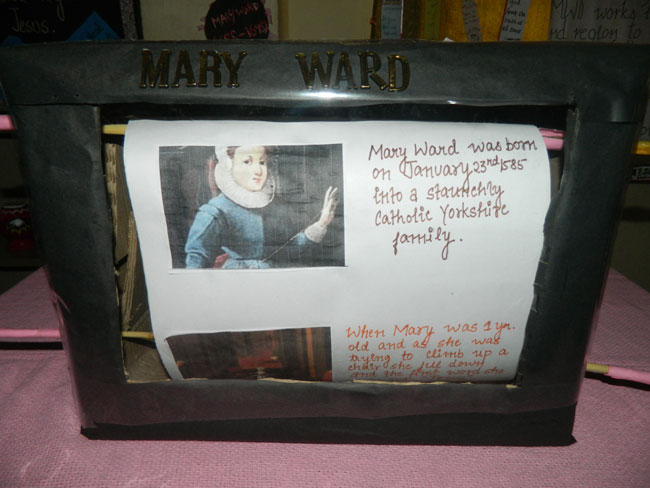 Jesus.
MARY WARD
works
MARY WARD
Mary Ward was born
on January 23rd 1585
into a staunchly
Catholic Yorkshire
family.
When Mary was 1 yr.
old and as she was
trying to climb up a
chair she fell down
and the first word she